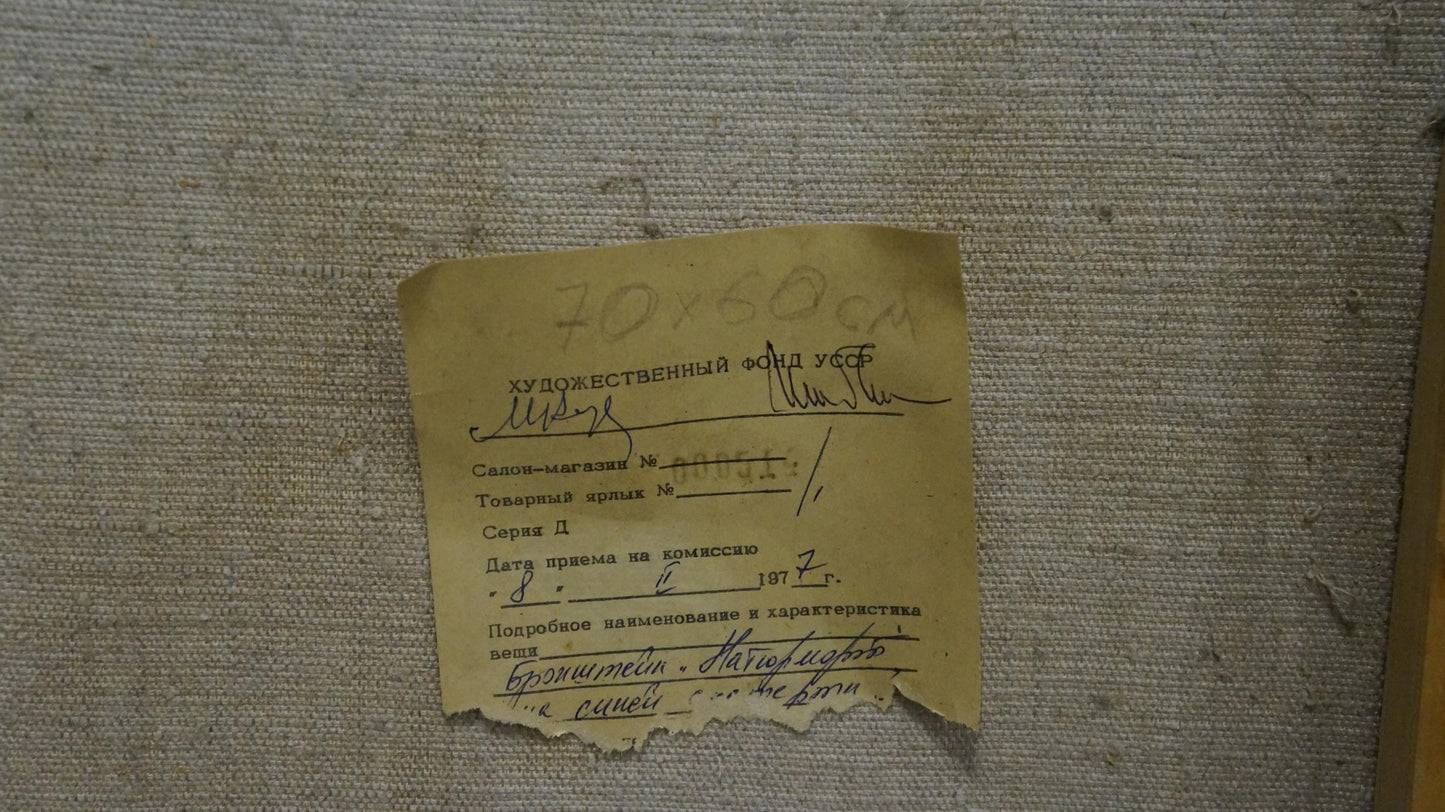 70х60см
ХУДОЖЕСТВЕННЫЙ ФОНД УССР
Салон-магазин №
Товарный ярлык №
Серия Д
Дата приема на комиссию
" 8 " II 1977 г.
Подробное наименование и характеристика
вещи
Бронштейн „Натюрморт
на синей скатерти"